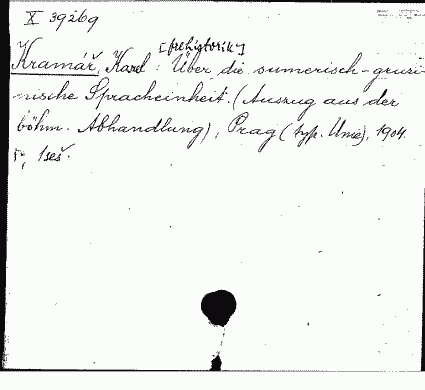 X 39269
[prehistorik]
Kramář, Karel: Über die sumerisch-grusi-
nische Spracheinheit. (Auszug aus der
böhm. Abhandlung), Prag (typ. Unie), 1904.
1 seš.